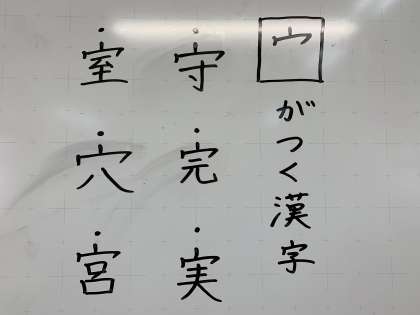 宀がつく漢字
・守・完・実
・室・穴・宮